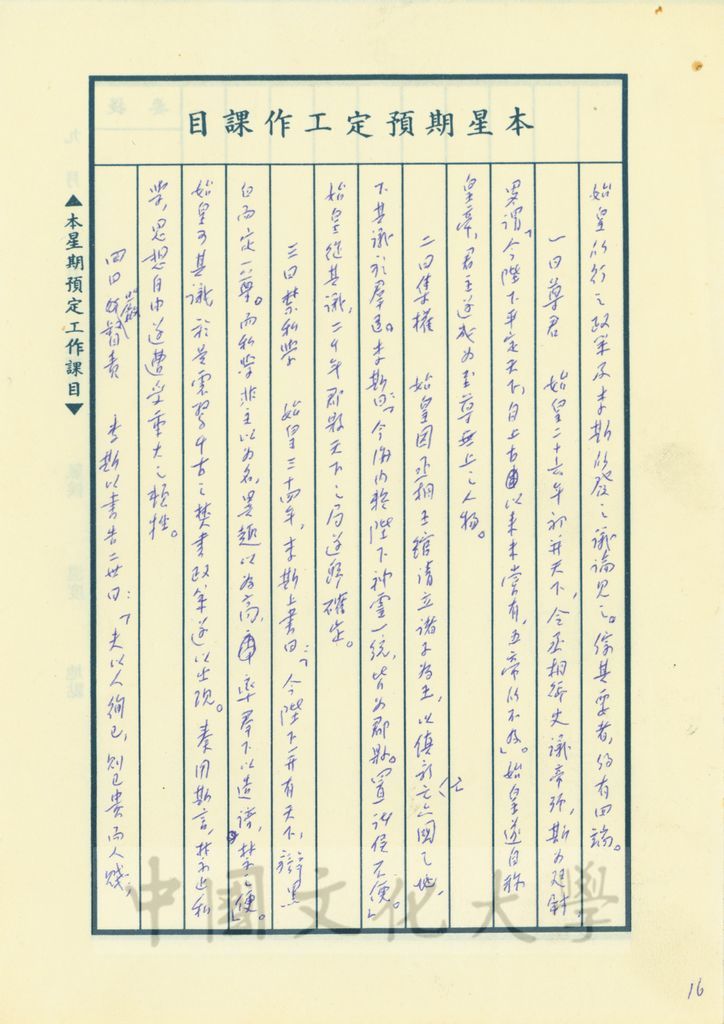 本星期預定工作課目
始皇所行之政策及李斯所發之議論見之。綜其要者，約有四端。
一曰尊君　始皇二十六年初并天下，令丞相御史議帝號，斯為廷尉
畧謂「今陛下平定天下，自上古以來未嘗有，五帝所不及」。始皇遂自稱
皇帝，君主遂成為至尊無上之人物。
二曰集權　始皇因丞相王綰請立諸子為王，以鎮六國之地，
下其議於羣臣。李斯曰：「今海內賴陛下神靈一統，皆為郡縣。置諸侯不便」
始皇從其議，二千年郡縣天下之局遂歸確定。
三曰禁私學　始皇三十四年，李斯上書曰：「今陛下并有天下，辯黑
白而定一尊。而私學非主以為名，異趣以為高，率羣下以造謗，禁之便。」
始皇可其議，於是震驚千古之焚書政策遂以出現。秦用斯言，禁止私
學，思想自由遂遭受重大之犧牲。
四曰嚴督責　李斯以書告二世曰：「夫以人徇己，則己貴而人賤，
▲本星期預定工作課目▼
中國文化大學
16